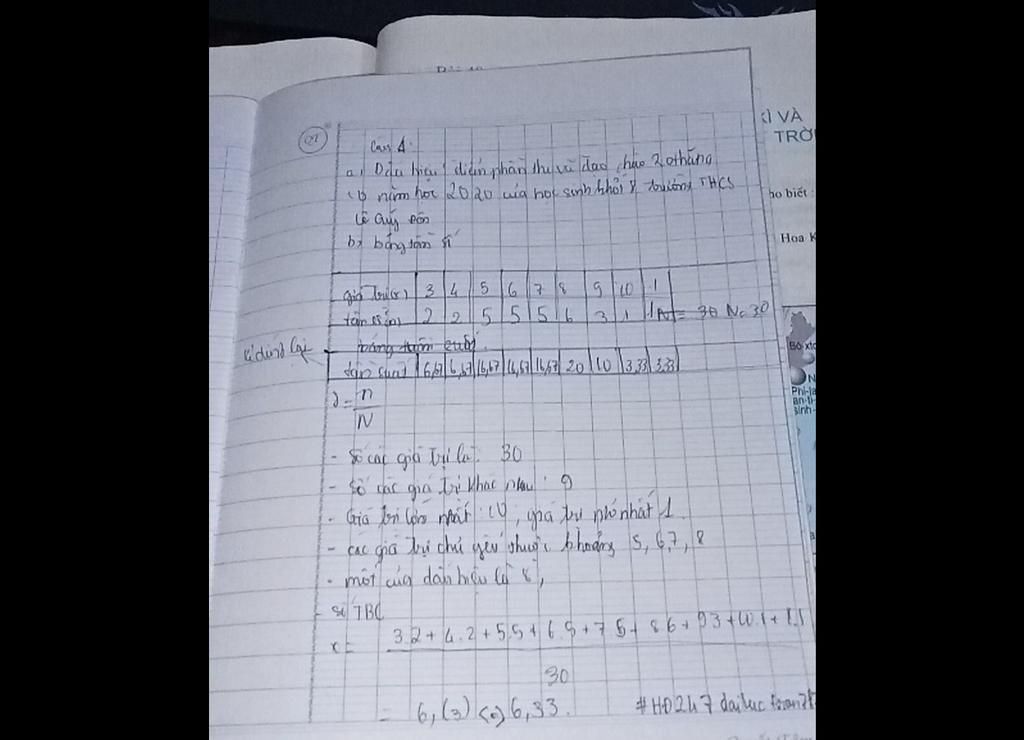 KÌ VÀ
TRỜ
ho biết :
Hoa K
Câu 4
a, Dấu hiệu: điểm phần thi vũ đạo chào 20 tháng
10 năm học 2020 của học sinh khối 8 trường THCS
Lê Quý Đôn
b, bảng tần số
giá trị(x) 3 4 5 6 7 8 9 10 1
tần số(n) 2 2 5 5 5 6 3 1 1 N = 30 N= 30
tần suất 6,67 6,67 16,67 16,67 16,67 20 10 3,33 3,33
n
N
- Số các giá trị là: 30
- Số các giá trị khác nhau: 9
- Giá trị lớn nhất: 10, giá trị nhỏ nhất 1
- các giá trị chủ yếu thuộc khoảng 5, 6,7, 8
- mốt của dấu hiệu là 8,
- số TBC
x = 3.2+4.2+5.5+6.5+7.5+8.6+9.3+10.1+1.1
30
= 6,(3) 6,33.
#HĐ247